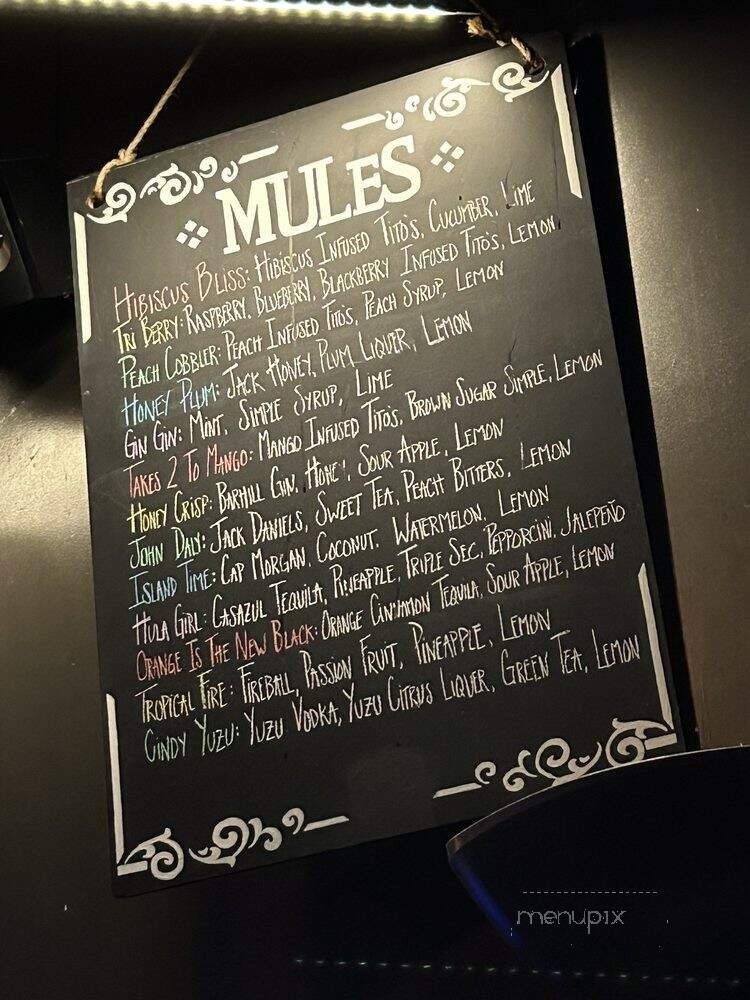 MULES
HIBISCUS BLISS: HIBISCUS INFUSED TITO'S, CUCUMBER, LIME
TRI BERRY: RASPBERRY, BLUEBERRY, BLACKBERRY INFUSED TITO'S, LEMON
PEACH COBBLER: PEACH INFUSED TITO'S, PEACH SYRUP, LEMON
HONEY PLUM: JACK HONEY, PLUM LIQUER, LEMON
GIN GIN: MINT, SIMPLE SYRUP, LIME
TAKES 2 TO MANGO: MANGO INFUSED TITO'S, BROWN SUGAR SIMPLE, LEMON
HONEY CRISP: BARHILL GIN, HONEY, SOUR APPLE, LEMON
JOHN DALY: JACK DANIELS, SWEET TEA, PEACH BITTERS, LEMON
ISLAND TIME: CAP MORGAN, COCONUT, WATERMELON, LEMON
HULA GIRL: CASAZUL TEQUILA, PINEAPPLE, TRIPLE SEC, PEPPORCINI, JALEPEÑO
ORANGE IS THE NEW BLACK: ORANGE CINNAMON TEQUILA, SOUR APPLE, LEMON
TROPICAL FIRE: FIREBALL, PASSION FRUIT, PINEAPPLE, LEMON
CINDY YUZU: YUZU VODKA, YUZU CITRUS LIQUER, GREEN TEA, LEMON
menupix